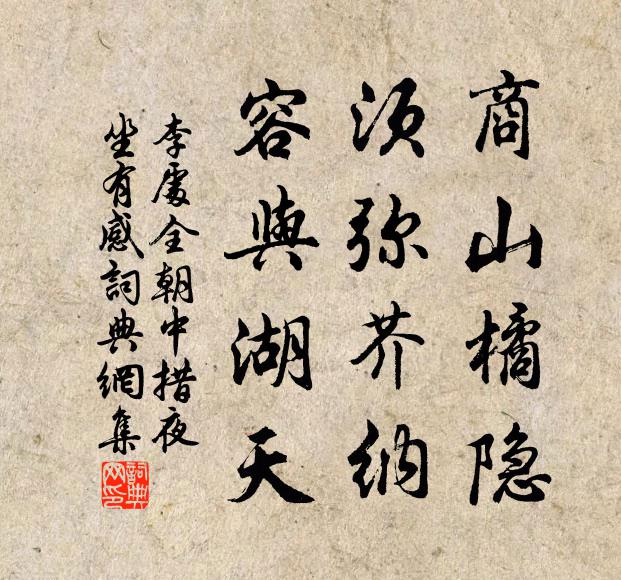 商山橘隐
须弥芥纳
容與湖天
李處全朝中措夜
坐有感詞典網集
詞典网印